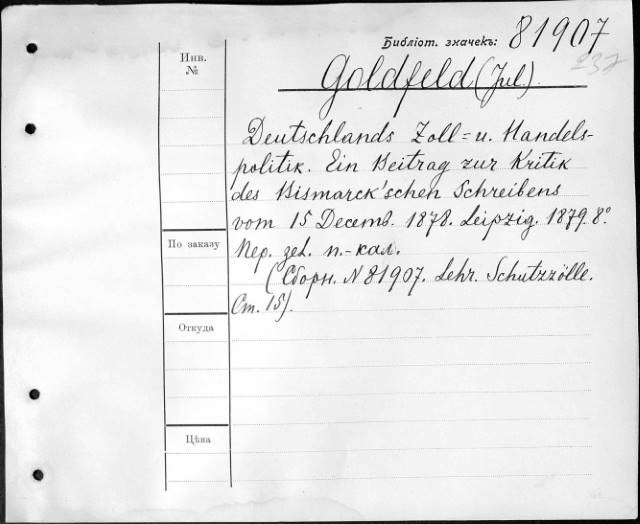 Библіот. значекъ: 81907
237
Инв.
№
Goldfeld (Jul.).
Deutschlands Zoll- u. Handels-
politik. Ein Beitrag zur Kritik
des Bismarck'schen Schreibens
vom 15 Decemb. 1878. Leipzig. 1879. 8º
По заказу
Пер. зел. п.-кал.
(Сборн. N 81907. Lehr. Schutzzölle.
Ст. 15).
Откуда
Цѣна